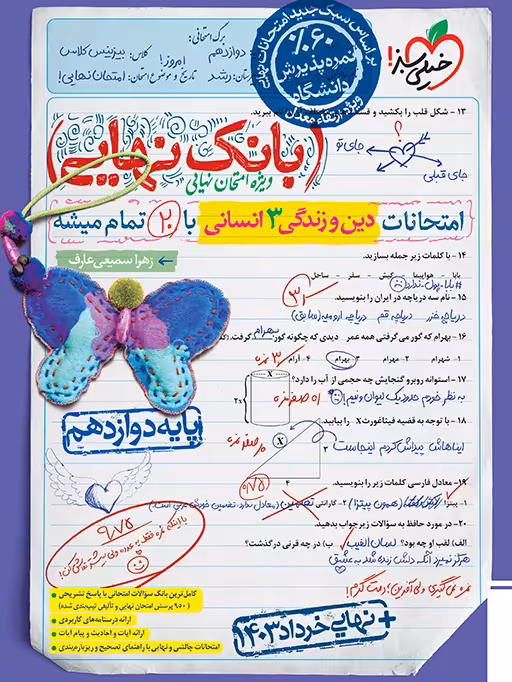 برگ امتحانی:
دوازدهم
کلاس: بیزینس کلاس
امروز!
رشد
تاریخ و موضوع امتحان: امتحان نهایی!
بر اساس سبک جدید امتحانات نهایی
۶۰٪
نمره پذیرش
دانشگاه
ویژه ارتقاء معدل
خیلی سبز!
۱۳- شکل قلب را بکشید و
ببرید.
؟
جای تو
جای قبلی
بانک نهایی
ویژه امتحان نهایی
امتحانات دین و زندگی ۳ انسانی با ۲۰ تمام میشه
زهرا سمیعی عارف
۱۴- با کلمات زیر جمله بسازید.
بابا - هواپیما - کیش - سفر - ساحل
#بابا_پول_ندارد
۱۵- نام سه دریاچه در ایران را بنویسید.
دریاچه خزر دریاچه قم دریاچه ارومیه (سابق)
۱۶- بهرام که گور می‌گرفتی همه عمر دیدی که چگونه گور بهرام گرفت.
۱- شهرام ۲- مهرام ۳- بهرام ۴- آرام
۱۷- استوانه روبرو گنجایش چه حجمی از آب را دارد؟
X
2x
به نظر خودم حدود یک لیوان و نیم!
۱۸- با توجه به قضیه فیثاغورث X را بیابید.
X
۳
۴
ایناهاش پیداش کردم اینجاست
۱۹- معادل فارسی کلمات زیر را بنویسید.
۱- پیتزا (همون پیتزا) ۲- گارانتی تضمین
۹/۷۵
۲۰- در مورد حافظ به سؤالات زیر جواب بدهید.
الف) لقب او چه بود؟ لسان الغیب ب) در چه قرنی درگذشت؟
هرگز نمیرد آنکه دلش زنده شد به عشق
نمره نمی‌گیری ولی آفرین؛ دمت گرم!
پایه دوازدهم
۹/۷۵
با اینکه نمره فقط یه عدده ولی بیشتر تلاش کن!
کامل‌ترین بانک سؤالات امتحانی با پاسخ تشریحی
(۹۵۰ پرسش امتحان نهایی و تألیفی تیپ‌بندی شده)
ارائه درسنامه‌های کاربردی
ارائه آیات و احادیث و پیام آیات
امتحانات چالشی و نهایی با راهنمای تصحیح و ریزبارم‌بندی
+ نهایی خرداد ۱۴۰۳